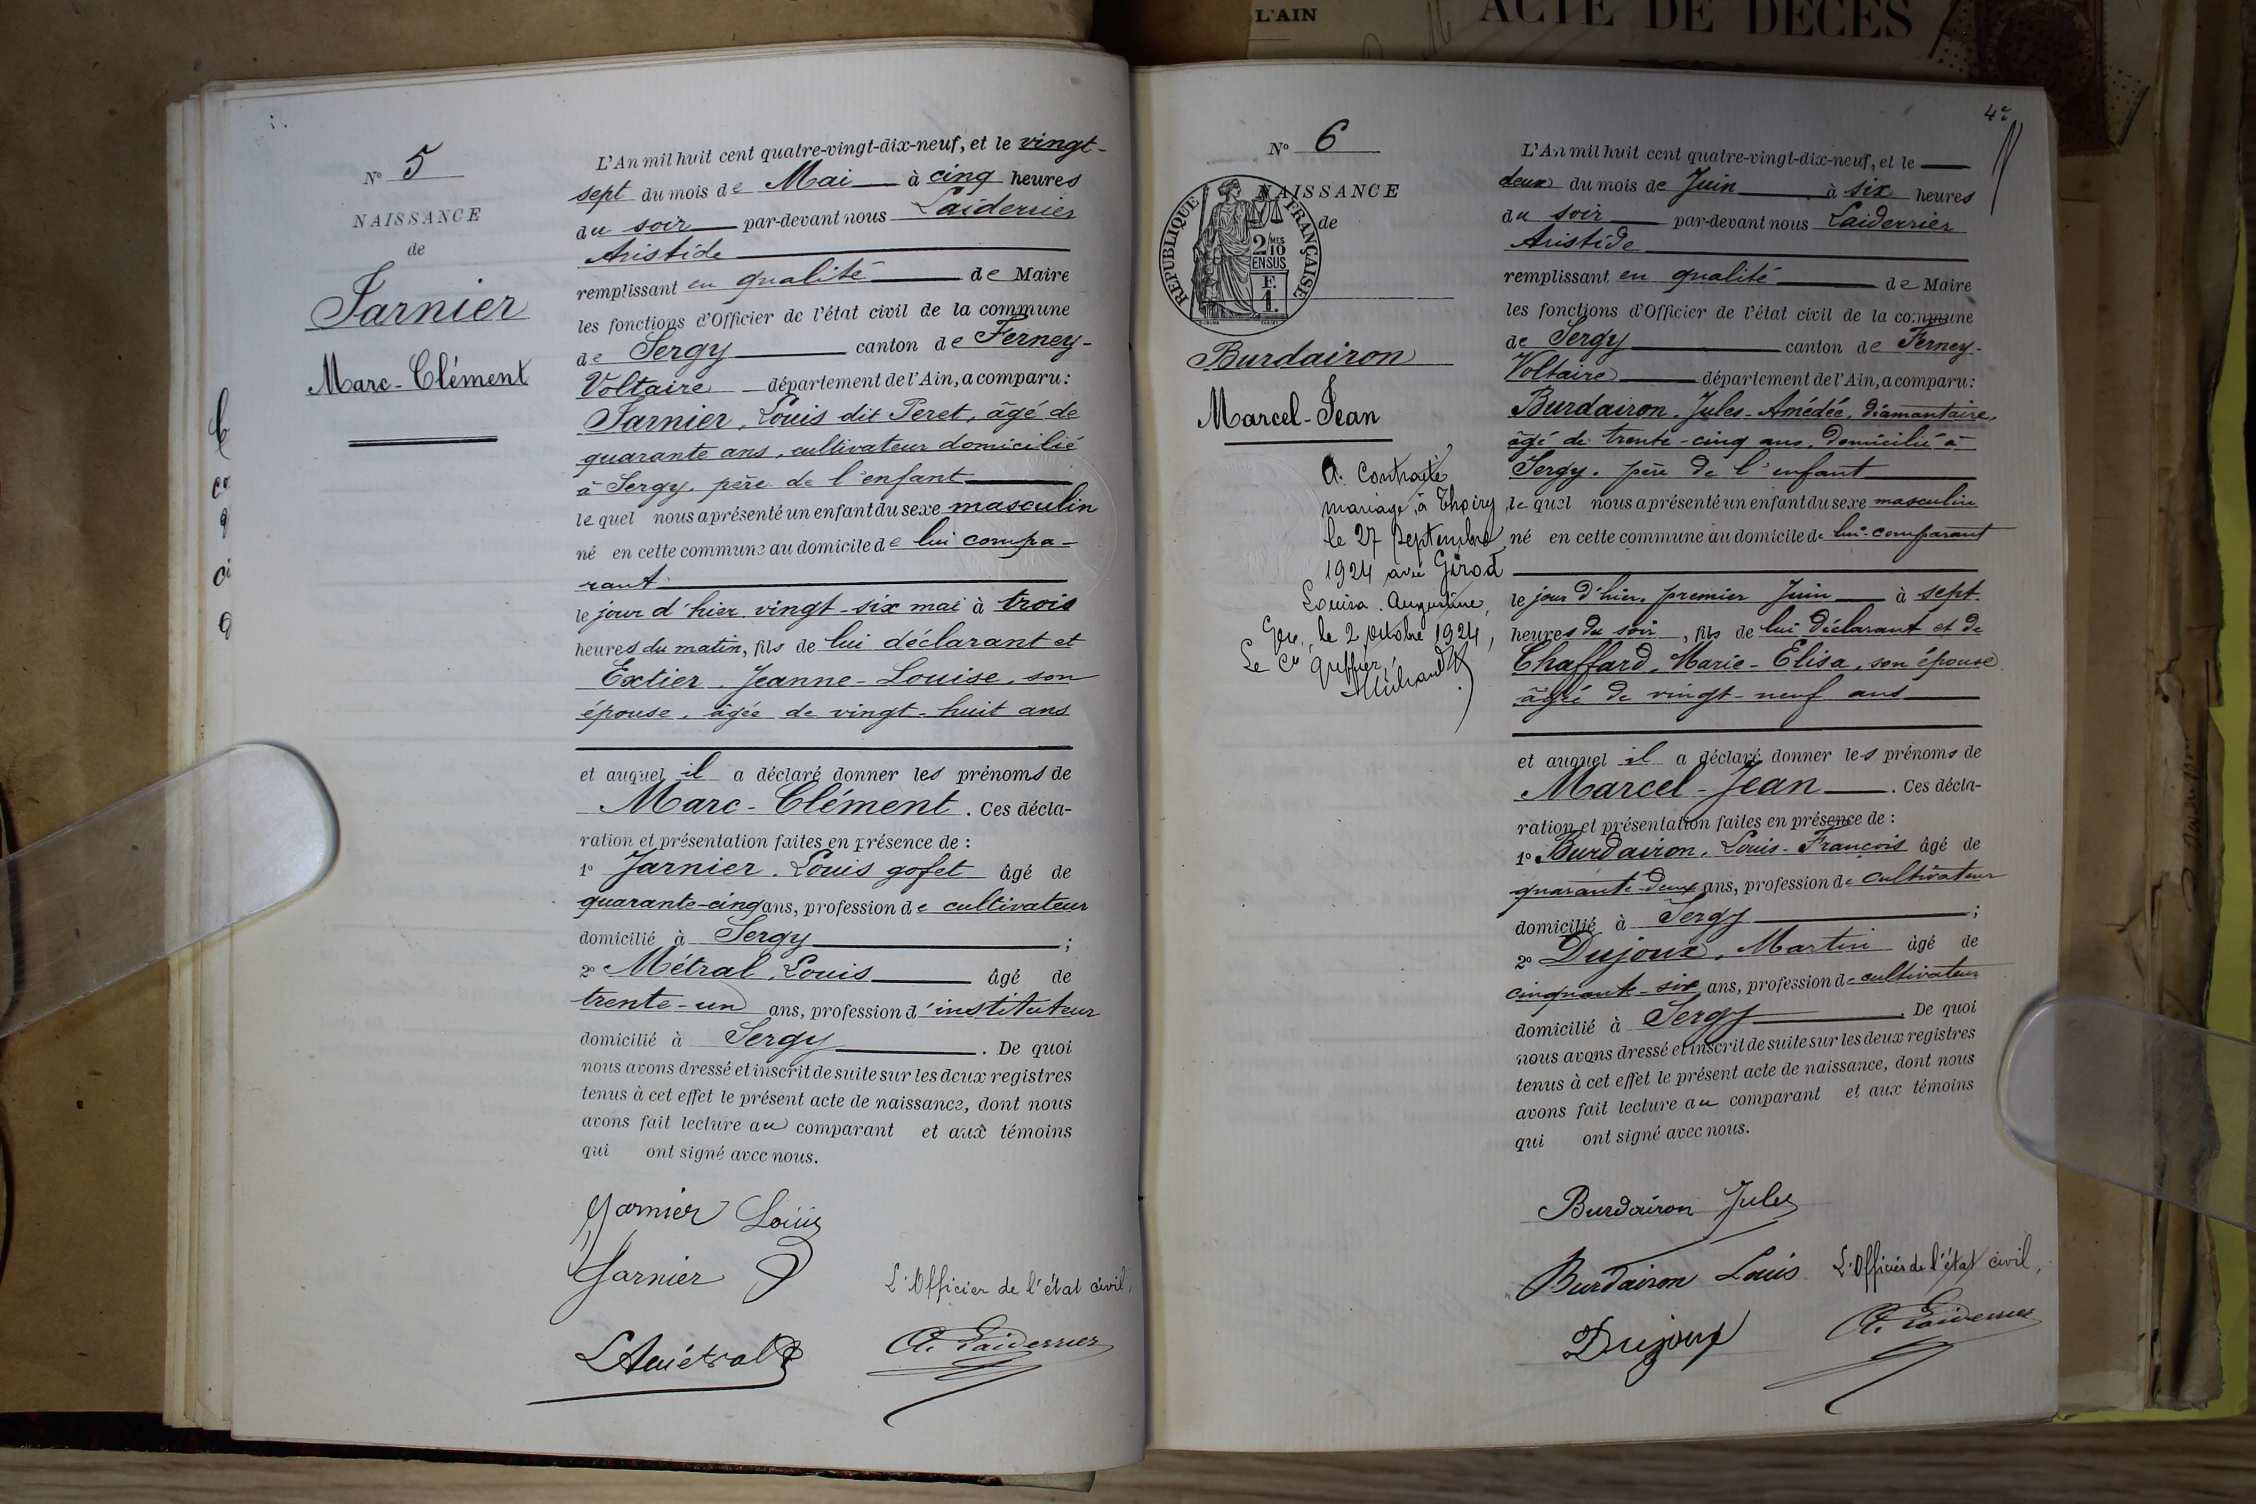 L'AIN
ACTE DE DECES
N° 5
NAISSANCE
de
Jarnier
Marc-Clément
L'An mil huit cent quatre-vingt-dix-neuf, et le vingt-
sept du mois de Mai à cinq heures
du soir par-devant nous Laiderrier
Aristide
remplissant en qualité de Maire
les fonctions d'Officier de l'état civil de la commune
de Sergy canton de Ferney-
Voltaire département de l'Ain, a comparu:
Jarnier, Louis dit Peret, âgé de
quarante ans, cultivateur domicilié
à Sergy, père de l'enfant
le quel nous a présenté un enfant du sexe masculin
né en cette commune au domicile de lui compa-
rant
le jour d'hier vingt-six mai à trois
heures du matin, fils de lui déclarant et
Extier, Jeanne-Louise, son
épouse, âgée de vingt-huit ans
et auquel il a déclaré donner les prénoms de
Marc-Clément. Ces décla-
ration et présentation faites en présence de :
1° Jarnier, Louis gofet âgé de
quarante-cinq ans, profession de cultivateur
domicilié à Sergy ;
2° Métral, Louis âgé de
trente-un ans, profession d'instituteur
domicilié à Sergy. De quoi
nous avons dressé et inscrit de suite sur les deux registres
tenus à cet effet le présent acte de naissance, dont nous
avons fait lecture au comparant et aux témoins
qui ont signé avec nous.
Jarnier Louis
Jarnier
L'Officier de l'état civil,
LMétral
A. Laiderrier
N° 6
NAISSANCE
de
RÉPUBLIQUE FRANÇAISE
2/MES 10 EN SUS
F. 1.
Burdairon
Marcel-Jean
A contracté
mariage à Thoiry
le 27 Septembre
1924 avec Girod
Louisa Augustine,
Gex, le 2 octobre 1924,
Le Cis Greffier,
4e
L'An mil huit cent quatre-vingt-dix-neuf, et le
deux du mois de Juin à six heures
du soir par-devant nous Laiderrier
Aristide
remplissant en qualité de Maire
les fonctions d'Officier de l'état civil de la commune
de Sergy canton de Ferney-
Voltaire département de l'Ain, a comparu:
Burdairon, Jules-Amédée, diamantaire,
âgé de trente-cinq ans, domicilié à
Sergy, père de l'enfant
le quel nous a présenté un enfant du sexe masculin
né en cette commune au domicile de lui-comparant
le jour d'hier, premier Juin à sept
heures du soir, fils de lui déclarant et de
Chaffard, Marie-Elisa, son épouse
âgée de vingt-neuf ans
et auquel il a déclaré donner les prénoms de
Marcel-Jean. Ces décla-
ration et présentation faites en présence de :
1° Burdairon, Louis-François âgé de
quarante-deux ans, profession de cultivateur
domicilié à Sergy ;
2° Dujoux, Martin âgé de
cinquante-six ans, profession de cultivateur
domicilié à Sergy. De quoi
nous avons dressé et inscrit de suite sur les deux registres
tenus à cet effet le présent acte de naissance, dont nous
avons fait lecture au comparant et aux témoins
qui ont signé avec nous.
Burdairon Jules
Burdairon Louis
L'Officier de l'état civil,
Dujoux
A. Laiderrier